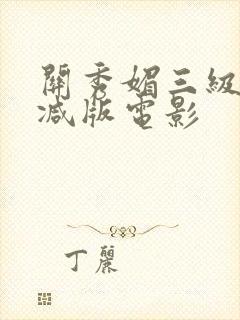 關秀媚三級
减版電影
丁麗